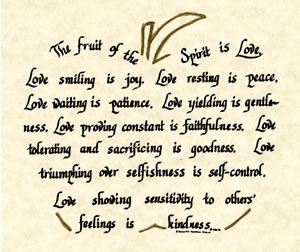 The fruit of the Spirit is Love.
Love smiling is joy. Love resting is peace.
Love waiting is patience. Love yielding is gentle-
ness. Love proving constant is faithfulness. Love
tolerating and sacrificing is goodness. Love
triumphing over selfishness is self-control.
Love showing sensitivity to others'
feelings is kindness.